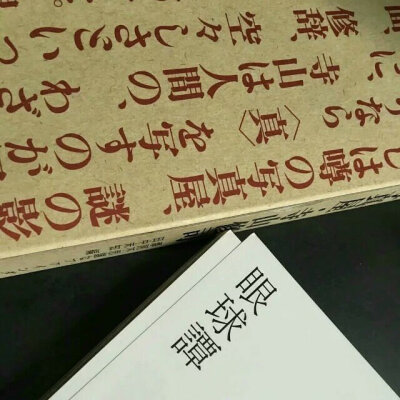 は噂の写真屋、謎の影
うなら〈真〉を写すのが
に、寺山は人間の、わざ
面、修辞、空々しさといっ
眼球譚